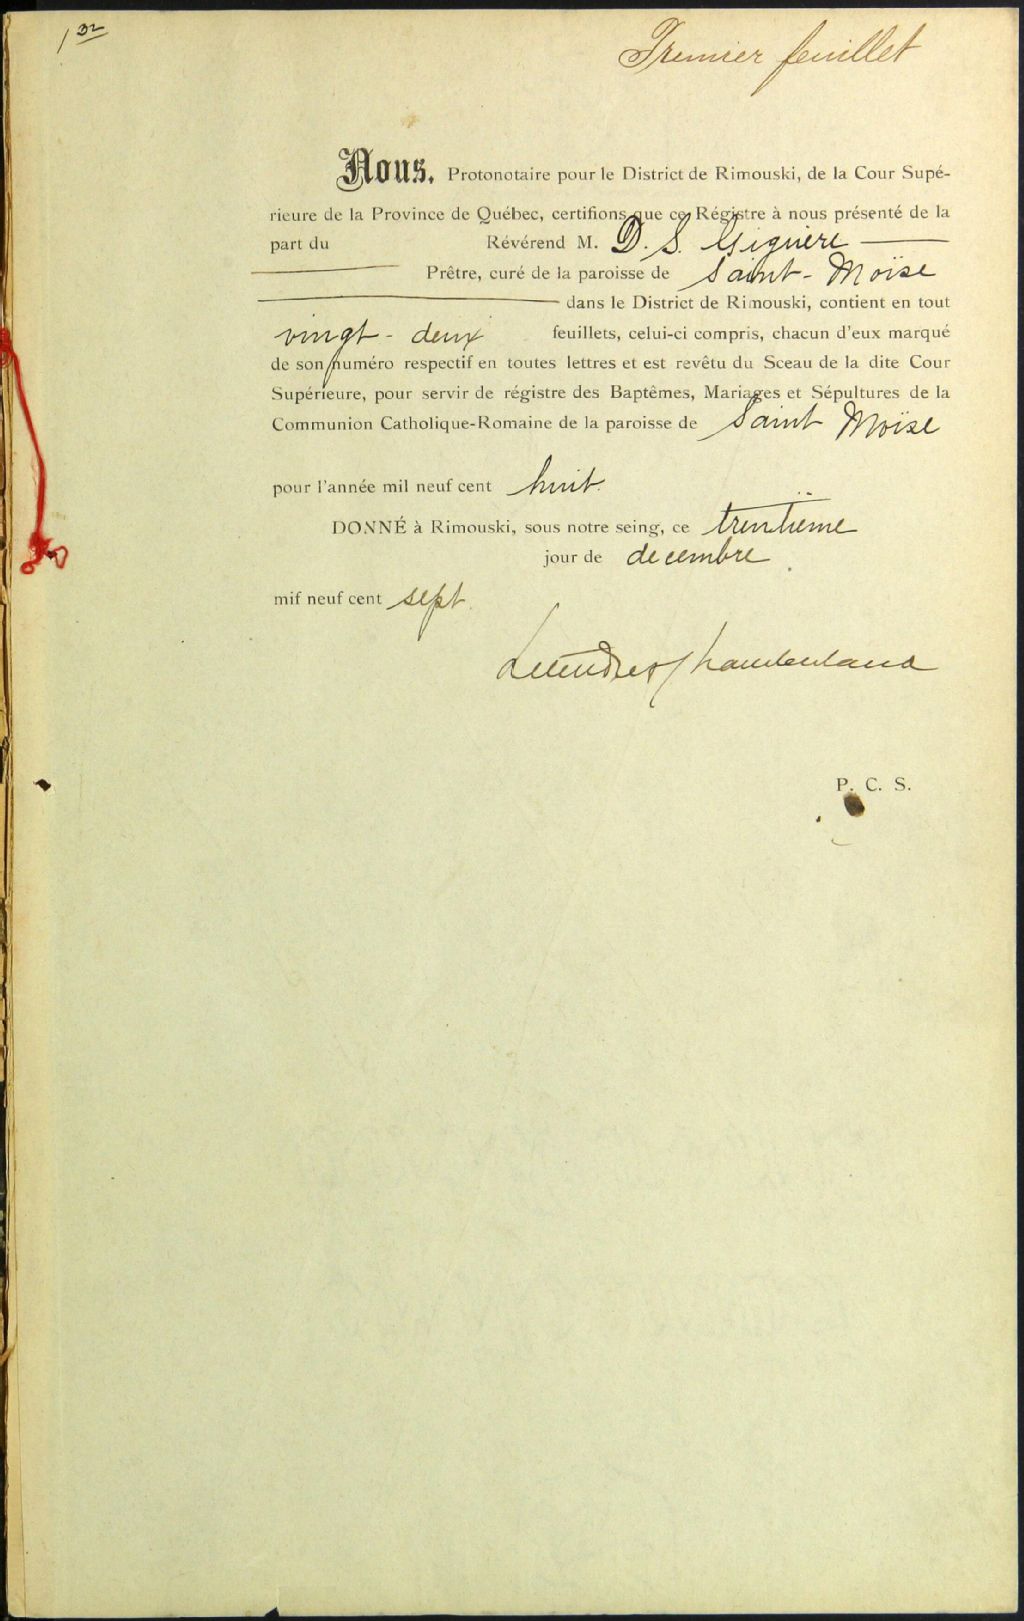 Premier feuillet
Nous, Protonotaire pour le District de Rimouski, de la Cour Supé-
rieure de la Province de Québec, certifions que ce Régistre à nous présenté de la
part du Révérend M. D. S. Giguère
Prêtre, curé de la paroisse de Saint-Moïse
dans le District de Rimouski, contient en tout
vingt-deux feuillets, celui-ci compris, chacun d'eux marqué
de son numéro respectif en toutes lettres et est revêtu du Sceau de la dite Cour
Supérieure, pour servir de régistre des Baptêmes, Mariages et Sépultures de la
Communion Catholique-Romaine de la paroisse de Saint Moïse
pour l'année mil neuf cent huit.
DONNÉ à Rimouski, sous notre seing, ce trentième
jour de decembre
mif neuf cent sept.
P. C. S.